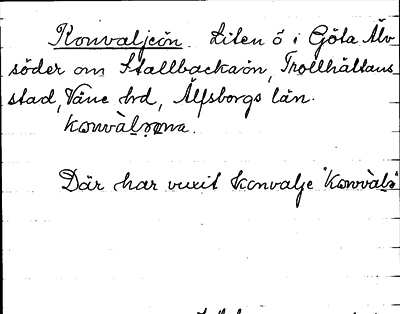 Konvaljeön. Liten ö i Göta Älv
söder om Stallbackaön, Trollhättans
stad, Väne hd, Älfsborgs län.
Där har vuxit konvalje